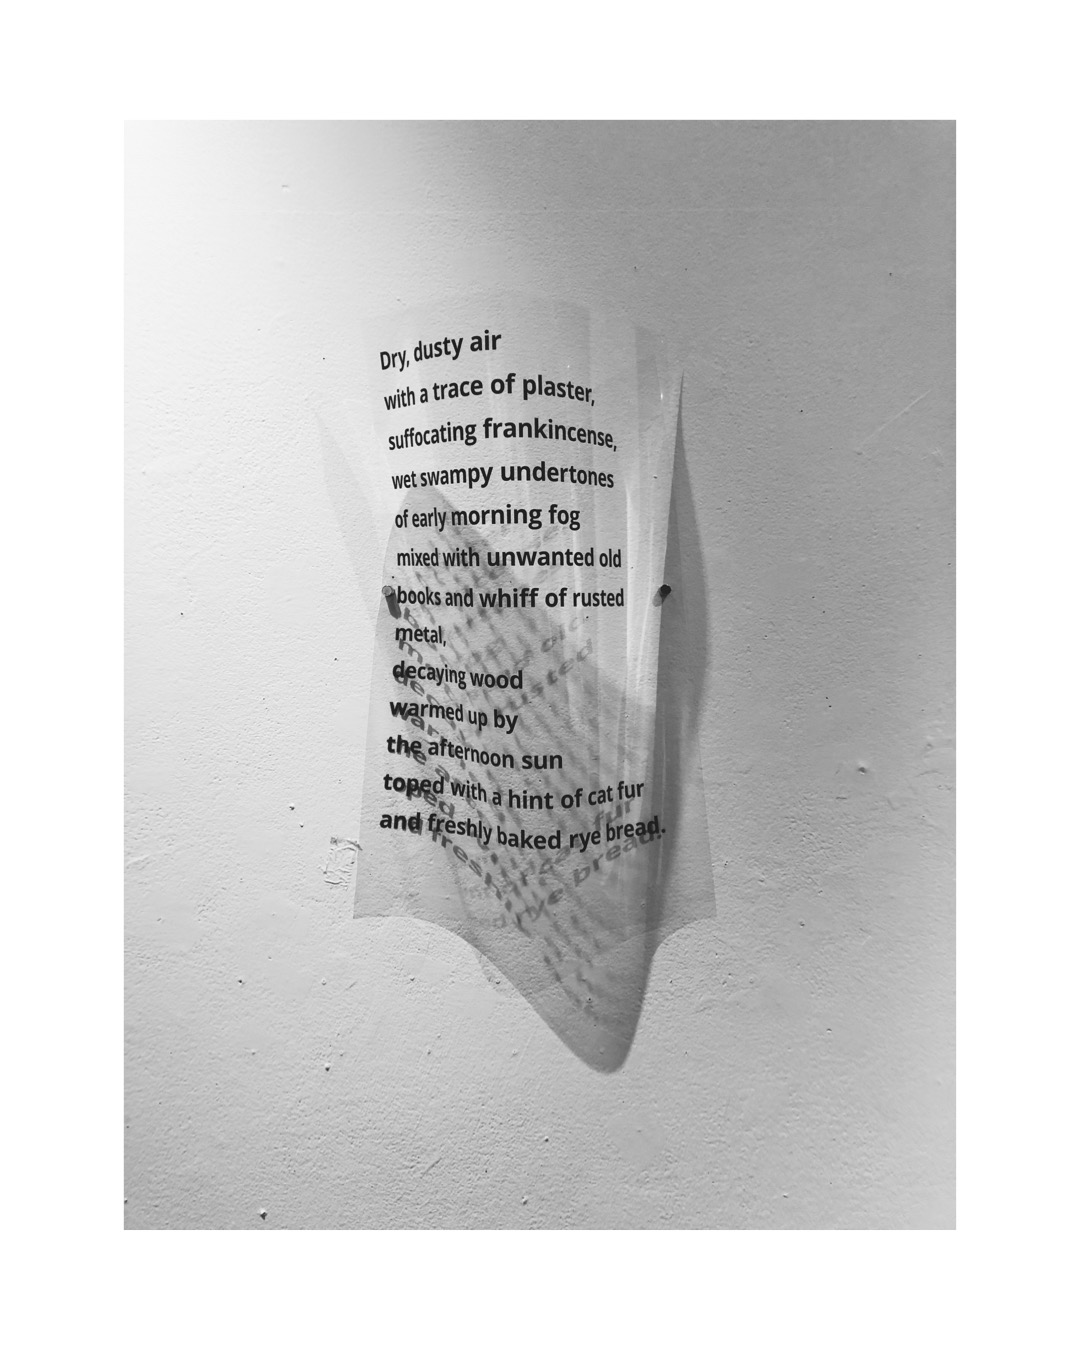 Dry, dusty air
with a trace of plaster,
suffocating frankincense,
wet swampy undertones
of early morning fog
mixed with unwanted old
books and whiff of rusted
metal,
decaying wood
warmed up by
the afternoon sun
toped with a hint of cat fur
and freshly baked rye bread.